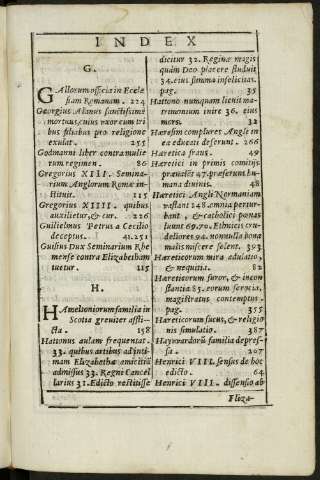 INDEX
G.
GAllorum officia in Eccle
siam Romanam. 224
Georgius Alanus sanctissimè
mortuus, eius uxor cum tri
bus filiabus pro religione
exulat. 255
Godmanni liber contra mulie
rum regimen. 86
Gregorius XIII. Semina-
rium Anglorum Romæ in-
stituit. 115
Gregorius XIIII. quibus
auxilietur, & cur. 226
Guilielmus Petrus a Cecilio
deceptus. 41.251
Guisius Dux Seminarium Rhe
mense contra Elizabetham
tuetur. 115
H.
HAmeltoniorum familia in
Scotia greuiter afflic-
cta. 158
Hattonus aulam frequentat.
33. quibus artibus ad inti-
mam Elizabethæ amicitiã
admissus 33. Regni Cancel
larius 31. Edicto rectitisse
dicitur 32. Reginæ magis
quàm Deo placere studuit
34. eius summa infelicitas.
pag. 35
Hattono nunquam licuit ma-
trimonium inire 36. eius
mors. 32
Hæresim complures Angli in
ea educati deserunt. 266
Hæretica fraus. 49
Hæretici in primis comitijs
præualẽt 47. præferunt hu-
mana diuinis. 48
Hæretici Angli Normaniam
vastãt 248. omnia pertur-
bant, & catholici ponas
luunt 69.70. Ethnicis cru-
deliores 94. nonnulla bona
malis miscere solent. 393
Hæreticorum mira adulatio,
& nequitia. 82
Hæreticorum furor, & incon
stantia 85. eorum seruitia.
magistratus contemptus.
pag. 355
Hæreticorum fucus, & religio
nis simulatio. 387
Haywardorũ familia depres-
sa. 207
Henrici VIII. sensus de hoc
edicto. 64
Henrici VIII. dissensio ab
Eliza-